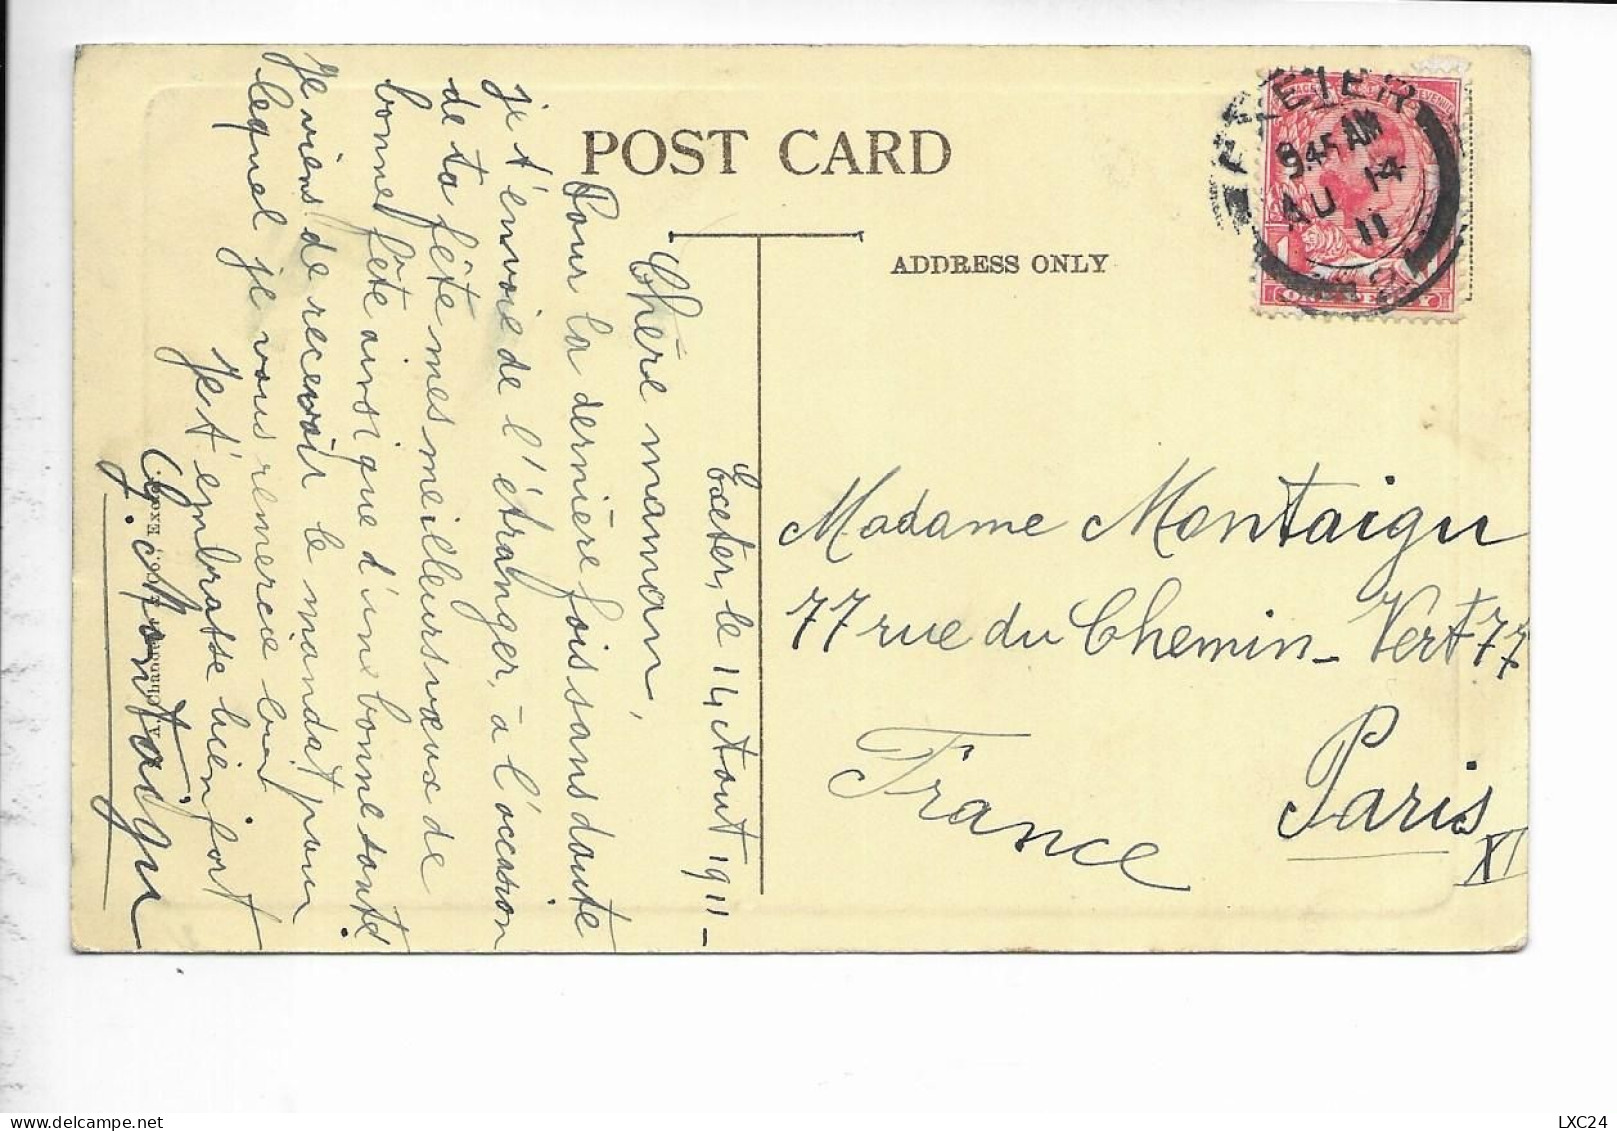 POST CARD
ADDRESS ONLY
EXETER
9.45 AM
AU 14
11
Exeter, le 14 Aout 1911-
Chère maman,
Pour la dernière fois sans doute
je t'envoie de l'étranger, à l'occasion
de ta fête mes meilleurs vœux de
bonne fête ainsi que d'une bonne santé.
Je viens de recevoir le mandat pour
lequel je vous remercie bien
Je t'embrasse bien fort
G. Montaigu
Madame Montaigu
77 rue du Chemin-Vert 77
Paris XI
France
LXC24